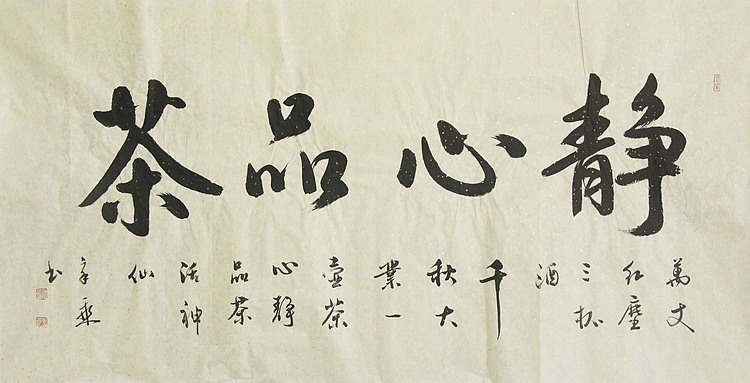 静心品茶
萬丈
红塵
三杯
酒
千
秋大
業一
壺茶
心静
品茶
活神
仙
书